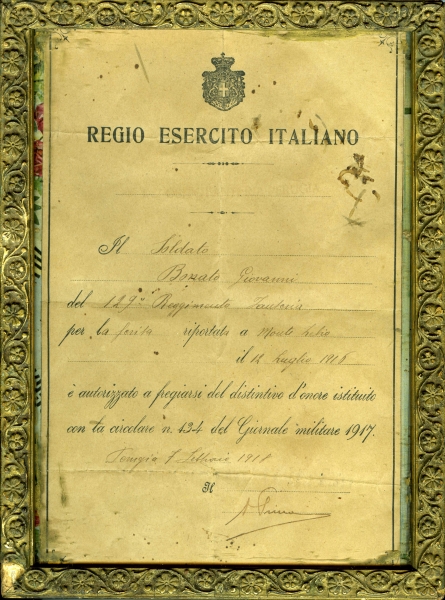 REGIO ESERCITO ITALIANO
Il Soldato
Giovanni
del 129° Reggimento Fanteria
per la ferita riportata a Monte
il 12 Luglio
è autorizzato a fregiarsi del distintivo d'onore istituito
con la circolare n. 134 del Giornale militare 1917.
7 Febbraio 1918
Il